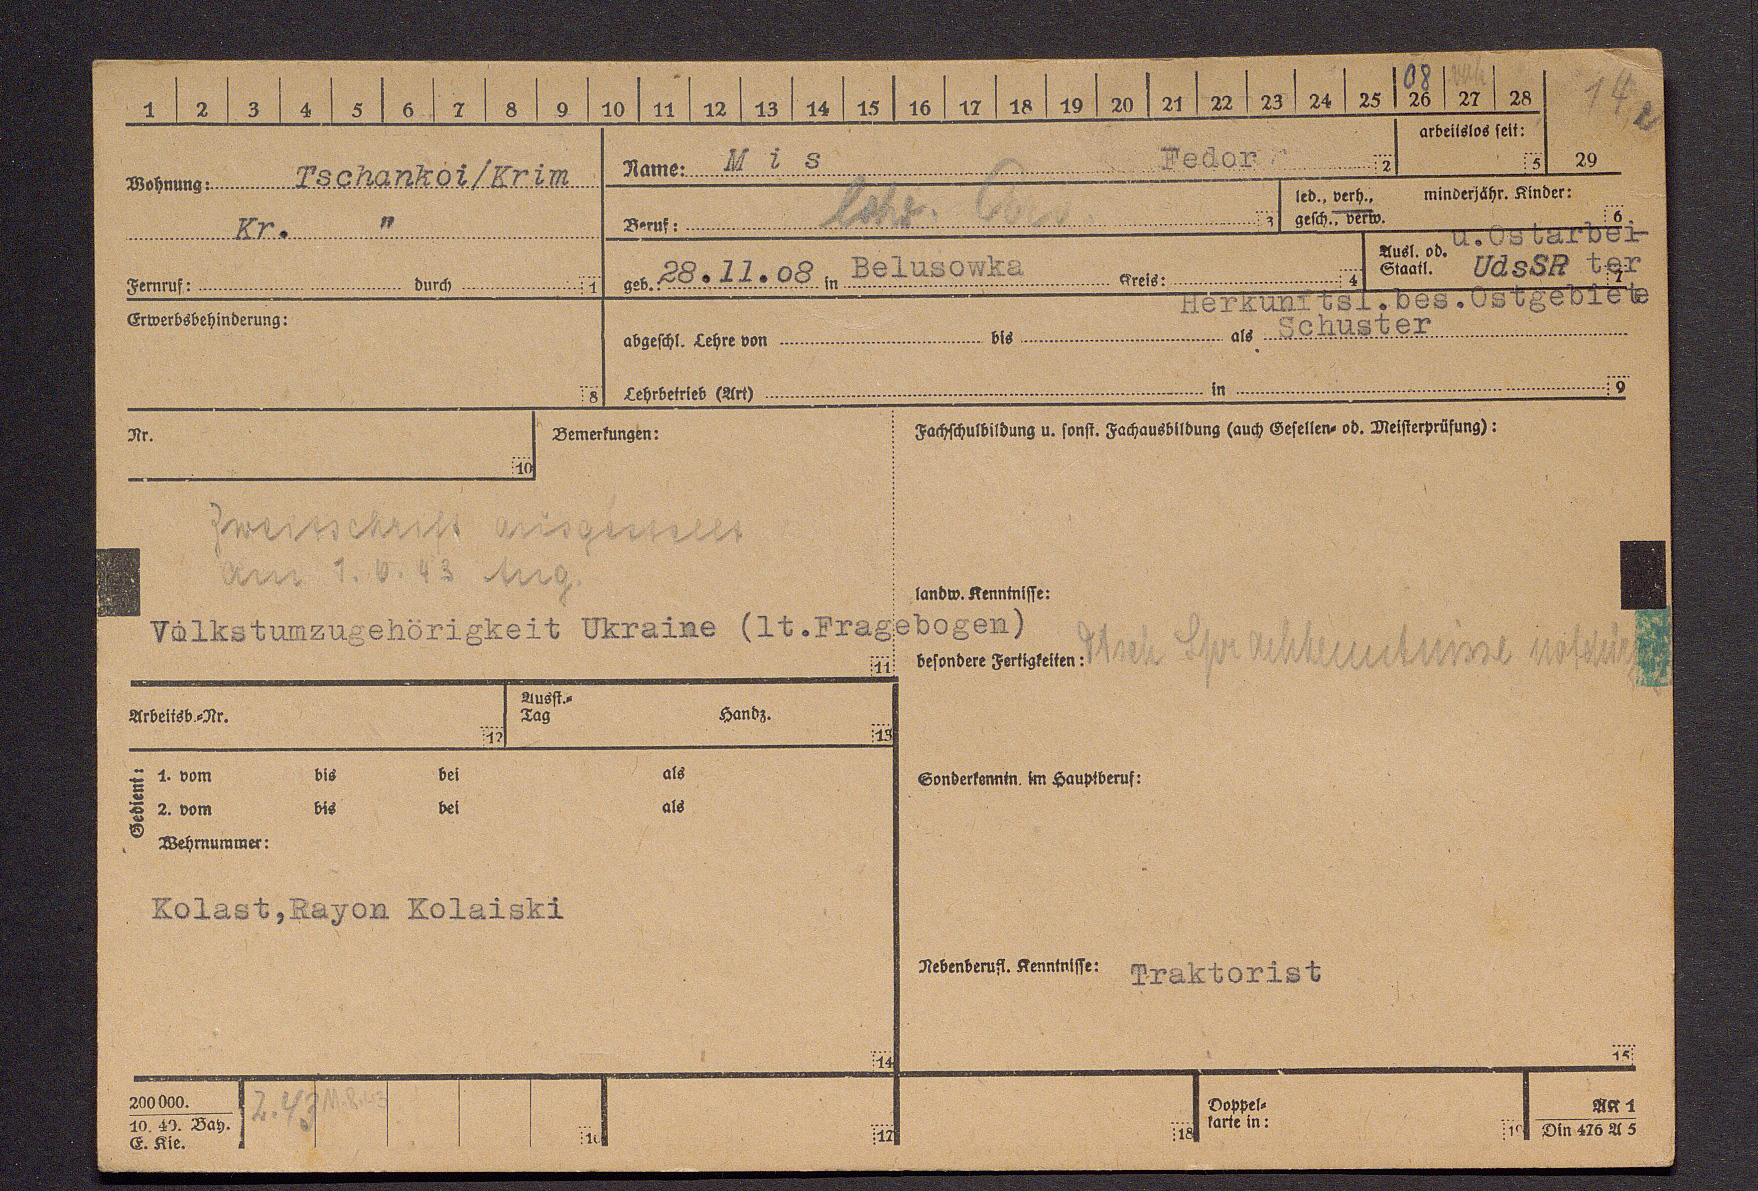 08
1 2 3 4 5 6 7 8 9 10 11 12 13 14 15 16 17 18 19 20 21 22 23 24 25 26 27 28
14
Wohnung: Tschankoi/Krim
Kr. "
Fernruf: durch 1
Name: M i s Fedor 2
arbeitslos seit:
5 29
Beruf: 3
led., verh.,
gesch., verw.
minderjähr. Kinder:
6
geb.: 28.11.08 in Belusowka Kreis: 4
u.Ostarbei-
Ausl. od.
Staatl. UdsSR ter
7
Erwerbsbehinderung:
8
Herkunftsl.bes.Ostgebiete
abgeschl. Lehre von bis als Schuster
Lehrbetrieb (Art) in 9
Nr.
10
Bemerkungen:
Zweitschrift ausgestellt
am 1. 43
Volkstumzugehörigkeit Ukraine (lt.Fragebogen)
11
Fachschulbildung u. sonst. Fachausbildung (auch Gesellen- od. Meisterprüfung):
landw. Kenntnisse:
besondere Fertigkeiten: Dtsch Sprachkenntnisse
Arbeitsb.-Nr.
12
Ausst.-
Tag Handz.
13
Gedient:
1. vom bis bei als
2. vom bis bei als
Wehrnummer:
Kolast,Rayon Kolaiski
14
Sonderkenntn. im Hauptberuf:
Nebenberufl. Kenntnisse: Traktorist
15
200000.
10. 40. Bay.
E. Kie.
2.43 11.8.43
16
17
18
Doppel-
karte in:
19
AK 1
Din 476 A 5